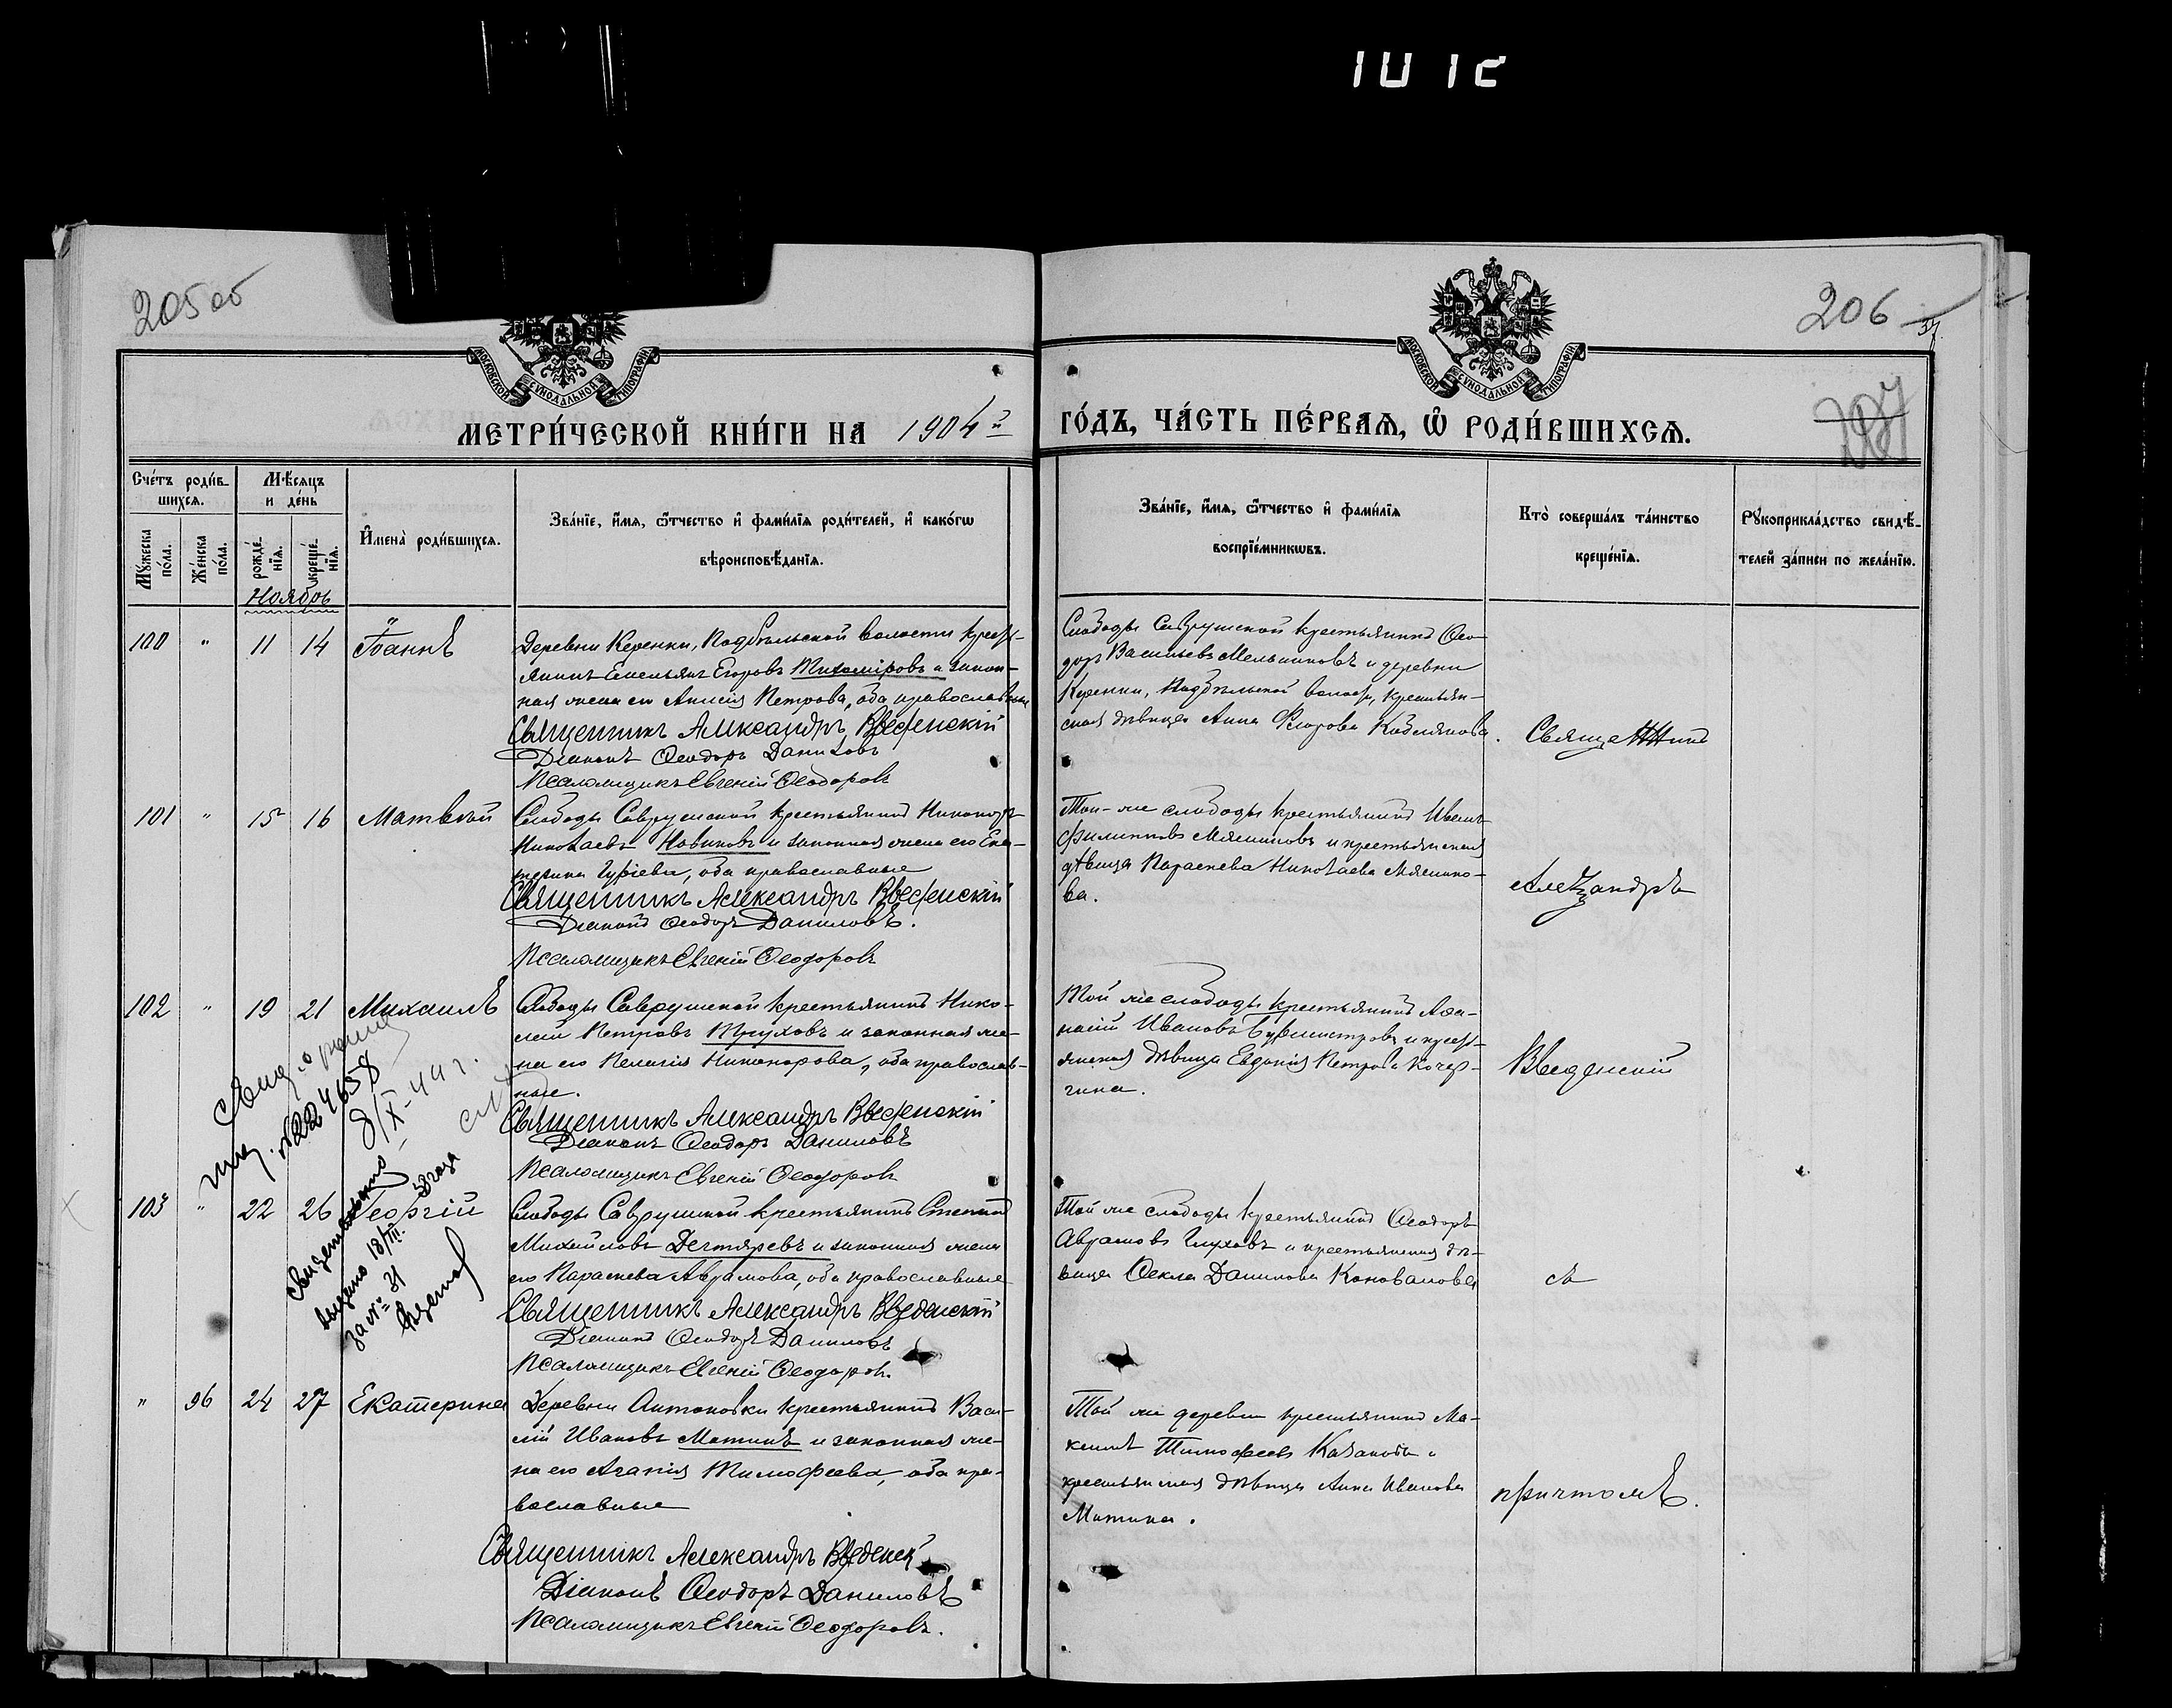 205 об
206
МОСКОВСКОЙ СѴНОДАЛЬНОЙ ТИПОГРАФІИ
МОСКОВСКОЙ СѴНОДАЛЬНОЙ ТИПОГРАФІИ
МЕТРИ́ЧЕСКОЙ КНИ́ГИ НА 1904 й
ГО́ДЪ, ЧА́СТЬ ПЕ́РВАѦ, Ѿ РОДИ́ВШИХСѦ.
Сче́тъ роди́в-
шихсѧ.
Му́жеска по́ла.
Же́нска по́ла.
Мѣ́сѧцъ
и де́нь
рожде́-
нїѧ.
креще́-
нїѧ.
Ноябрь
Имена̀ роди́вшихсѧ.
Зва́нїе, и́мѧ, ѻ́тчество и фами́лїѧ роди́телей, и како́гѡ
вѣроисповѣ́данїѧ.
Зва́нїе, и́мѧ, ѻ́тчество и фами́лїѧ
воспрїе́мникѡвъ.
Кто̀ соверша́лъ та́инство
креще́нїѧ.
Рꙋкоприкла́дство свидѣ́-
телей за́писи по жела́нїю.
100 " 11 14 Іоаннъ
Деревни Керенки, Подбѣльской волости крест-
янинъ Емельянъ Егоровъ Тихоміровъ и закон-
ная жена его Анисія Петрова, оба православные
Священникъ Александръ Введенскій
Діаконъ Ѳеодоръ Даниловъ
Псаломщикъ Евгеній Ѳеодоровъ
Слободы Саврушской крестьянинъ Ѳео-
доръ Васильевъ Мельниковъ и деревни
Керенки, Подбѣльской волости, крестьян-
ская дѣвица Анна
Священникъ
101 " 15 16 Матвѣй
Слободы Саврушской крестьянинъ Никаноръ
Николаевъ Новиковъ и законная жена его Ека-
терина Гурьева, оба православные
Священникъ Александръ Введенскій
Діаконъ Ѳеодоръ Даниловъ.
Псаломщикъ Евгеній Ѳеодоровъ
Той-же слободы крестьянинъ Иванъ
Филипповъ и крестьянская
дѣвица Параскева Николаева
ва.
Александръ
102 " 19 21 Михаилъ
Слободы Саврушской крестьянинъ Нико-
лай Петровъ и законная же-
на его Пелагія Никонорова, оба православ-
ные.
Священникъ Александръ Введенскій
Діаконъ Ѳеодоръ Даниловъ
Псаломщикъ Евгеній Ѳеодоровъ
Той же слободы крестьянинъ Аѳа-
насій Ивановъ Бурмистровъ и крест-
янская дѣвица Евдокія Петрова Кочер-
гина.
Введенскій
8/X-44 г.
103 " 22 26 Георгій
Слободы Саврушской крестьянинъ Стефанъ
Михайловъ Дегтяревъ и законная жена
его Параскева Аврамова, оба православные
Священникъ Александръ Введенскій
Діаконъ Ѳеодоръ Даниловъ
Псаломщикъ Евгеній Ѳеодоровъ.
Той же слободы крестьянинъ Ѳеодоръ
Аврамовъ Глуховъ и крестьянская дѣ-
вица Ѳекла Данилова Коновалова
съ
выдано 18/VIII
за № 31
" 96 24 27 Екатерина
Деревни Антоновки крестьянинъ Васи-
лій Ивановъ Мотинъ и законная же-
на его Агапія Тимофеева, оба пра-
вославные
Священникъ Александръ Введенскй
Діаконъ Ѳеодоръ Даниловъ
Псаломщикъ Евгеній Ѳеодоровъ.
Той же деревни крестьянинъ Ма-
ксимъ Тимофеевъ Казаковъ и
крестьянская дѣвица Анна Иванова
Мотина.
причтомъ.